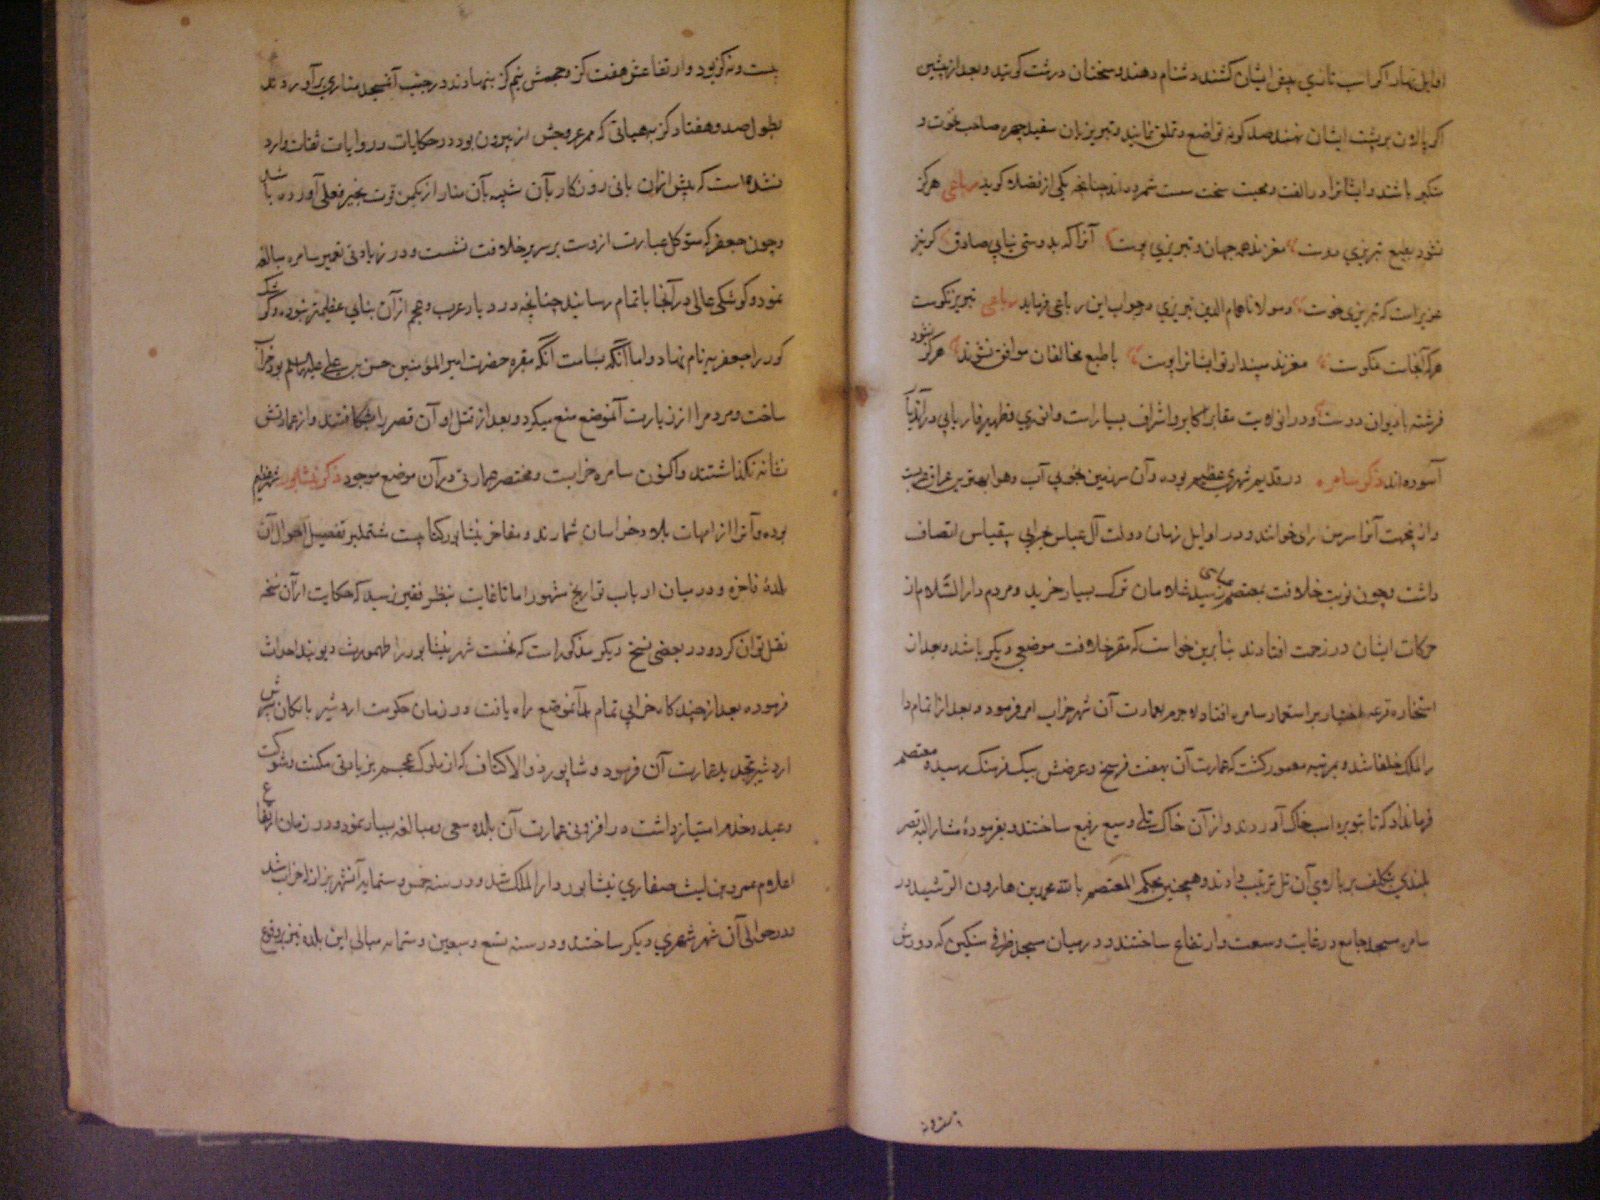 اوایل نهار اکر اسب تازی پیش ایشان کشند دشنام دهند و سخنان درشت کویند و بعد از پیشین
اکر پالان بر پشت ایشان نهند صد کونه تواضع و تملق نمایند و تبریزیان سفید چهره صاحب نخوت و
متکبر باشند و ایشانرا در الفت و محبت سخت سست شمرده اند چنانچه یکی از فضلا کوید رباعی هرکز
نشود بطبع تبریزی دوست مغزند همه جهان و تبریزی پوست آنرا که بدوستی نیابی صادق کر نیز
عزیز است که تبریزی خوست و مولانا همام الدین تبریزی در جواب این رباعی فرماید رباعی تبریز نکوست
هرکه آنجاست نکوست مغزند مپندار تو ایشانرا پوست با طبع مخالفان موافق نشوند هرکز نشود
فرشته با دیوان دوست و در انولایت مقابر اکابر و اشراف بسیار است و انوری و ظهیر فاریابی در آندیار
آسوده اند ذکر سامره در قدیم شهری عظیم بوده و آن سرزمین بخوبی آب و هوا بهترین عراق عربست
و از ینجهت آنرا سر من رای خوانند و در اوایل زمان دولت آل عباس خرابی بیقیاس اتصاف
داشت و چون نوبت خلافت بمعتصم عباسی رسید غلامان ترک بسیار خرید و مردم دار السّلام از
حرکات ایشان در زحمت افتادند بنابرین خواست که مقر خلافت موضعی دیکر باشد و بعد از
استخاره قرعه اختیار بر استعمار سامره افتاد لاجرم بعمارت آن شهر خراب امر فرمود و بعد از اتمام دا
ر الملک خلفا شد و بمرتبه معمور کشت که عمارت آن بهفت فرسخ و عرضش بیک فرسنک رسیده معتصم
فرمانداد که تا بتوبره اسب خاک آوردند و از آن خاک تلی وسیع رفیع ساختند و بفرموده مشار الیه قصر
بلندی بتکلف بر بالاوی آن تل ترتیب دادند و همچنین بحکم المعتصم بالله محمد بن هارون الرشید در
سامره مسجد جامع در غایت وسعت و ارتفاع ساختند و در میان مسجد ظرفی سنکین که دورش
بیست و سه کز بود و ارتفاعش هفت کز و حجمش نیم کز بنهادند در جنب آنمسجد مناری بر آوردند
بطول صد و هفتاد کز بهیاتی که ممر عروجش از بیرون بود در حکایات و روایات ثقات وارد
نشده است که پیش از آن بانی روزکار بآن شبیه بآن منار از مکمن قوت بحیز فعل آورده باشد
و چون جعفر که متوکل عبارت ازوست بر سریر خلافت نشست و در زیادتی تعمیر سامره مبالغه
نمود و کوشکی عالی در آنجا باتمام رسانید چنانچه در دیار عرب و عجم از آن بنای عظیمتر نبوده و کوشک
کور را جعفریه نام نهاد و اما آنکه بشامت آنکه مقبره حضرت امیر المؤمنین حسین بن علی علیه السلم بود خراب
ساخت و مردم را از زیارت آنموضع منع میکرد و بعد از قتل او آن قصر را بشکافتند و از عمارتش
نشانه نکذاشتند و اکنون سامره خرابست و مختصر عمارتی در آن موضع موجود ذکر نیشابور شهر عظیم
بوده و آنرا از امهات بلاد خراسان شمارند و مفاخر نیشابور کتابیست مشتملبر تفصیل احوال آن
بلدهٔ فاخره و در میان ارباب تواریخ مشهور اما تا غایت بنظر فقیر نرسید که حکایت از آن نسخه
نقل توان کرد و در بعضی نسخ دیکر مذکور است که نخست شهر نیشابور را طهمورث دیوبند احداث
فرموده بعد از چند کاه خرابی تمام بآنموضع راه یافت و در زمان حکومت اردشیر بابکان پسرش
اردشیر بتجدید عمارت آن فرمود و شاپور ذو الاکتاف که از ملوک عجم بزیادتی مکنت و شوکت
و عبد و خدم امتیاز داشت در افزونی عمارت آن بلده سعی و مبالغه بسیار نمود و در زمان ارتفاع
اعلام عمرو بن لیث صفاری نیشابور دار الملک شد و در سنه خمس و ستمایه آنشهر بزلزله خراب شد
و در حوالی آن شهر شهری دیکر ساختند و در سنه تسع و سبعین و ستمایه مبانی این بلده نیز بوقوع